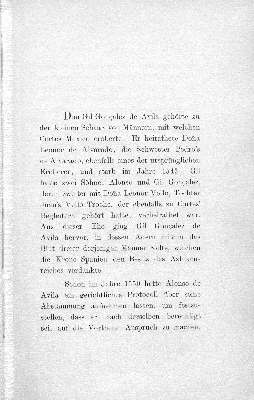 Don Gil Gonzalez de Avila gehörte zu
der kleinen Schar von Männern, mit welchen
Cortes Mexico eroberte. Er heirathete Doña
Leonor de Alvarado, die Schwester Pedro's
de Alvarado, ebenfalls eines der ursprünglichen
Eroberer, und starb im Jahre 1543. Gil
hatte zwei Söhne, Alonso und Gil Gonzalez,
der zweiter mit Doña Leonor Vello, Tochter
Juan's Vello Troche, der ebenfalls zu Cortes'
Begleitern gehört hatte, verheirathet war.
Aus dieser Ehe ging Gil Gonzalez de
Avila hervor, in dessen Adern mithin das
Blut dreier derjenigen Männer rollte, welchen
die Krone Spanien den Besitz des Azteken-
reiches verdankte.
Schon im Jahre 1550 hatte Alonso de
Avila ein gerichtliches Protocoll über seine
Abstammung aufnehmen lassen, um festzu-
stellen, dass er nach derselben berechtigt
sei, auf die Vortheile Anspruch zu machen,